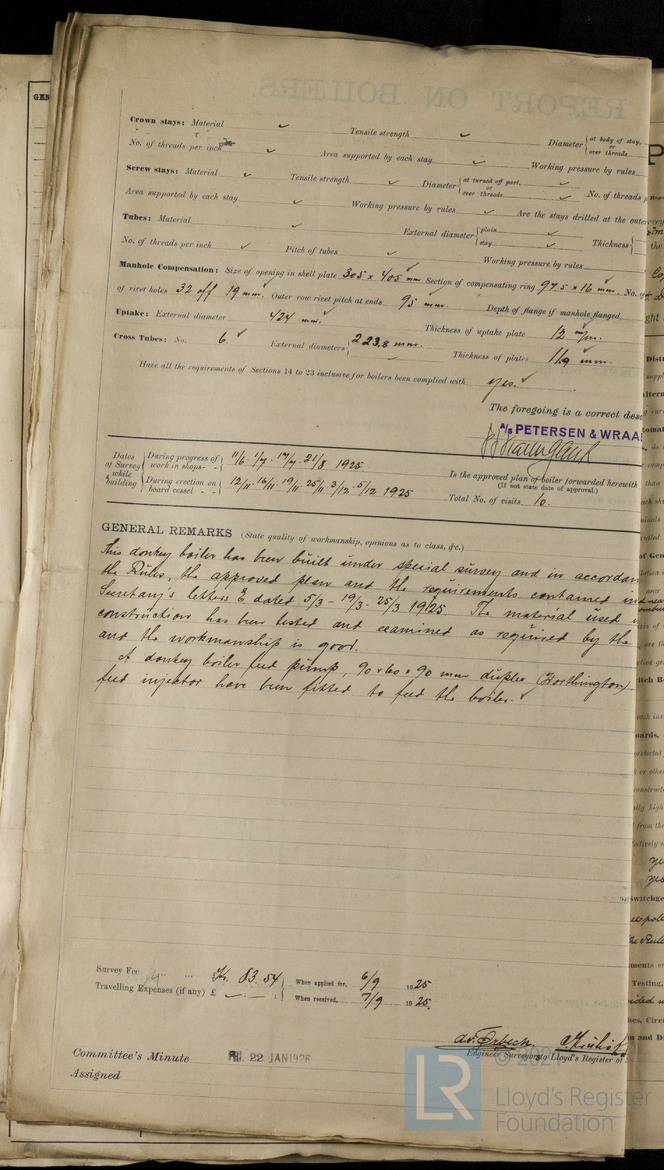 REPORT ON BOILERS.
GEN
Crown stays: Material ✓ Tensile strength ✓ Diameter { at body of stay, or over threads
No. of threads per inch ✓ Area supported by each stay ✓ Working pressure by rules
Screw stays: Material ✓ Tensile strength ✓ Diameter { at turned off part, or over threads ✓ No. of threads
Area supported by each stay ✓ Working pressure by rules ✓ Are the stays drilled at the outer
Tubes: Material ✓ External diameter { plain stay ✓ Thickness {
No. of threads per inch ✓ Pitch of tubes ✓ Working pressure by rules
Manhole Compensation: Size of opening in shell plate 305 x 405 mm Section of compensating ring 97.5 x 16 mm. No.
of rivet holes 32 off 19 mm. Outer row rivet pitch at ends 95 mm. Depth of flange if manhole flanged
Uptake: External diameter 424 mm. Thickness of uptake plate 12 m/m.
Cross Tubes: No. 6 External diameters { 223,8 mm. Thickness of plates 11,9 mm.
Have all the requirements of Sections 14 to 23 inclusive for boilers been complied with yes. ✓
The foregoing is a correct des
A/S PETERSEN & WRAA
Dates of Survey while building { During progress of work in shops - - 11/6. 1/7. 17/7. 21/8 1925
During erection on board vessel - - 12/11. 16/11. 19/11. 25/11. 3/12. 5/12 1925
Is the approved plan of boiler forwarded herewith
(If not state date of approval.)
Total No. of visits 10.
GENERAL REMARKS (State quality of workmanship, opinions as to class, &c.)
This donkey boiler has been built under special survey and in accordan
the Rules, the approved plan and the requirements contained in
Secretary's letters E dated 5/3 - 19/3 - 25/3 1925. The material used
construction has been tested and examined as required by the
and the workmanship is good.
A donkey boiler feed pump, 90 x 60 x 90 mm duplex (Worthington)
feed injector have been fitted to feed the boiler. ✓
Survey Fee ... Kr. 83.54 When applied for, 6/9 1925
Travelling Expenses (if any) £ When received, 7/9 1925.
Engineer Surveyor to Lloyd's Register of
Committee's Minute FRI. 22 JAN 1926
Assigned
© 2021
LR
Lloyd's Register
Foundation